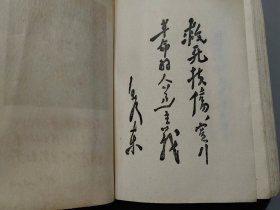 救死扶傷，实行
革命的人道主義
毛澤东